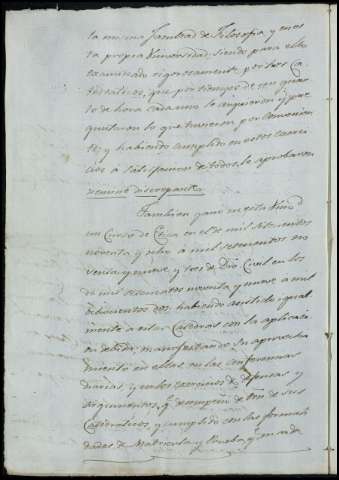 la misma Facultad de Filosofia y en es
ta propia Universidad, siendo para ello
examinado rigorosamente por tres Ca
tedraticos, que por tiempo de un quar
to de hora cada uno le arguieron y pre
guntaron lo que tuvieron por convenien
te; y habiendo cumplido en estos exerci
cios á satisfaccion de todos, lo aprobaron
nemine discrepante.
Tambien ganó en esta Univd
un Curso de en el de mil setecientos
noventa y ocho á mil setecientos no
venta y nueve, y tres de Dro Civil en los
de mil setecientos noventa y nueve a mil
ochocientos dos, habiendo asistido igual
mente á estas Catedras con la aplicaci
on debida; manifestando su aprovecha
miento en ellas en las conferencias
diarias, y en los exercicios de defensas y
argumentos, qe desempeñó de ôrn de sus
Catedraticos, y cumplido con las formali
dades de Matricula y Prueba qe en cada